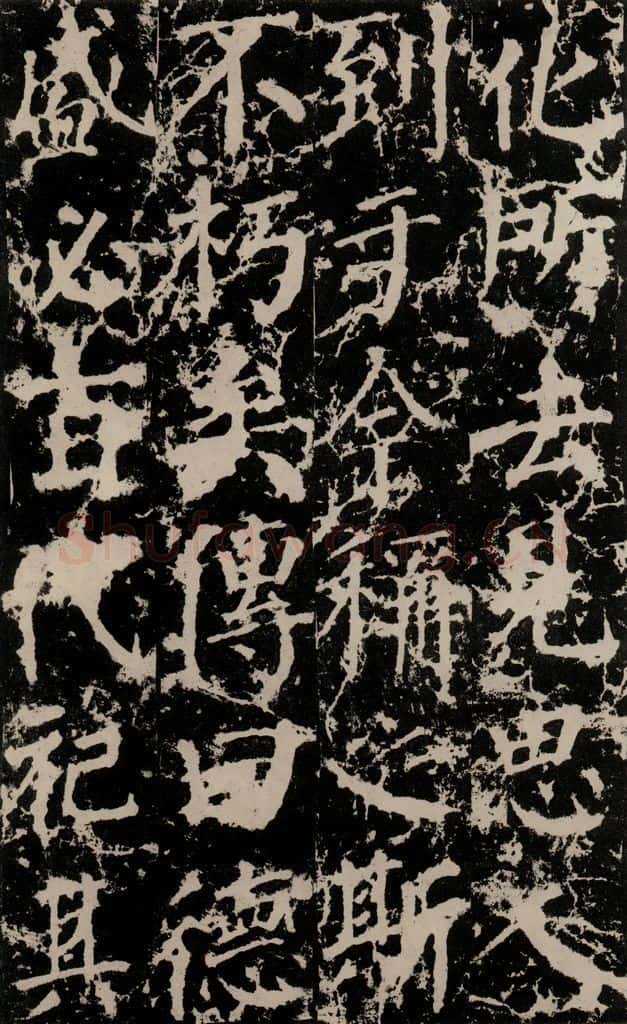 化所去見思人
到于今稱之斯
不朽矣傳曰德
盛必百代祀其
Shufawang.CN